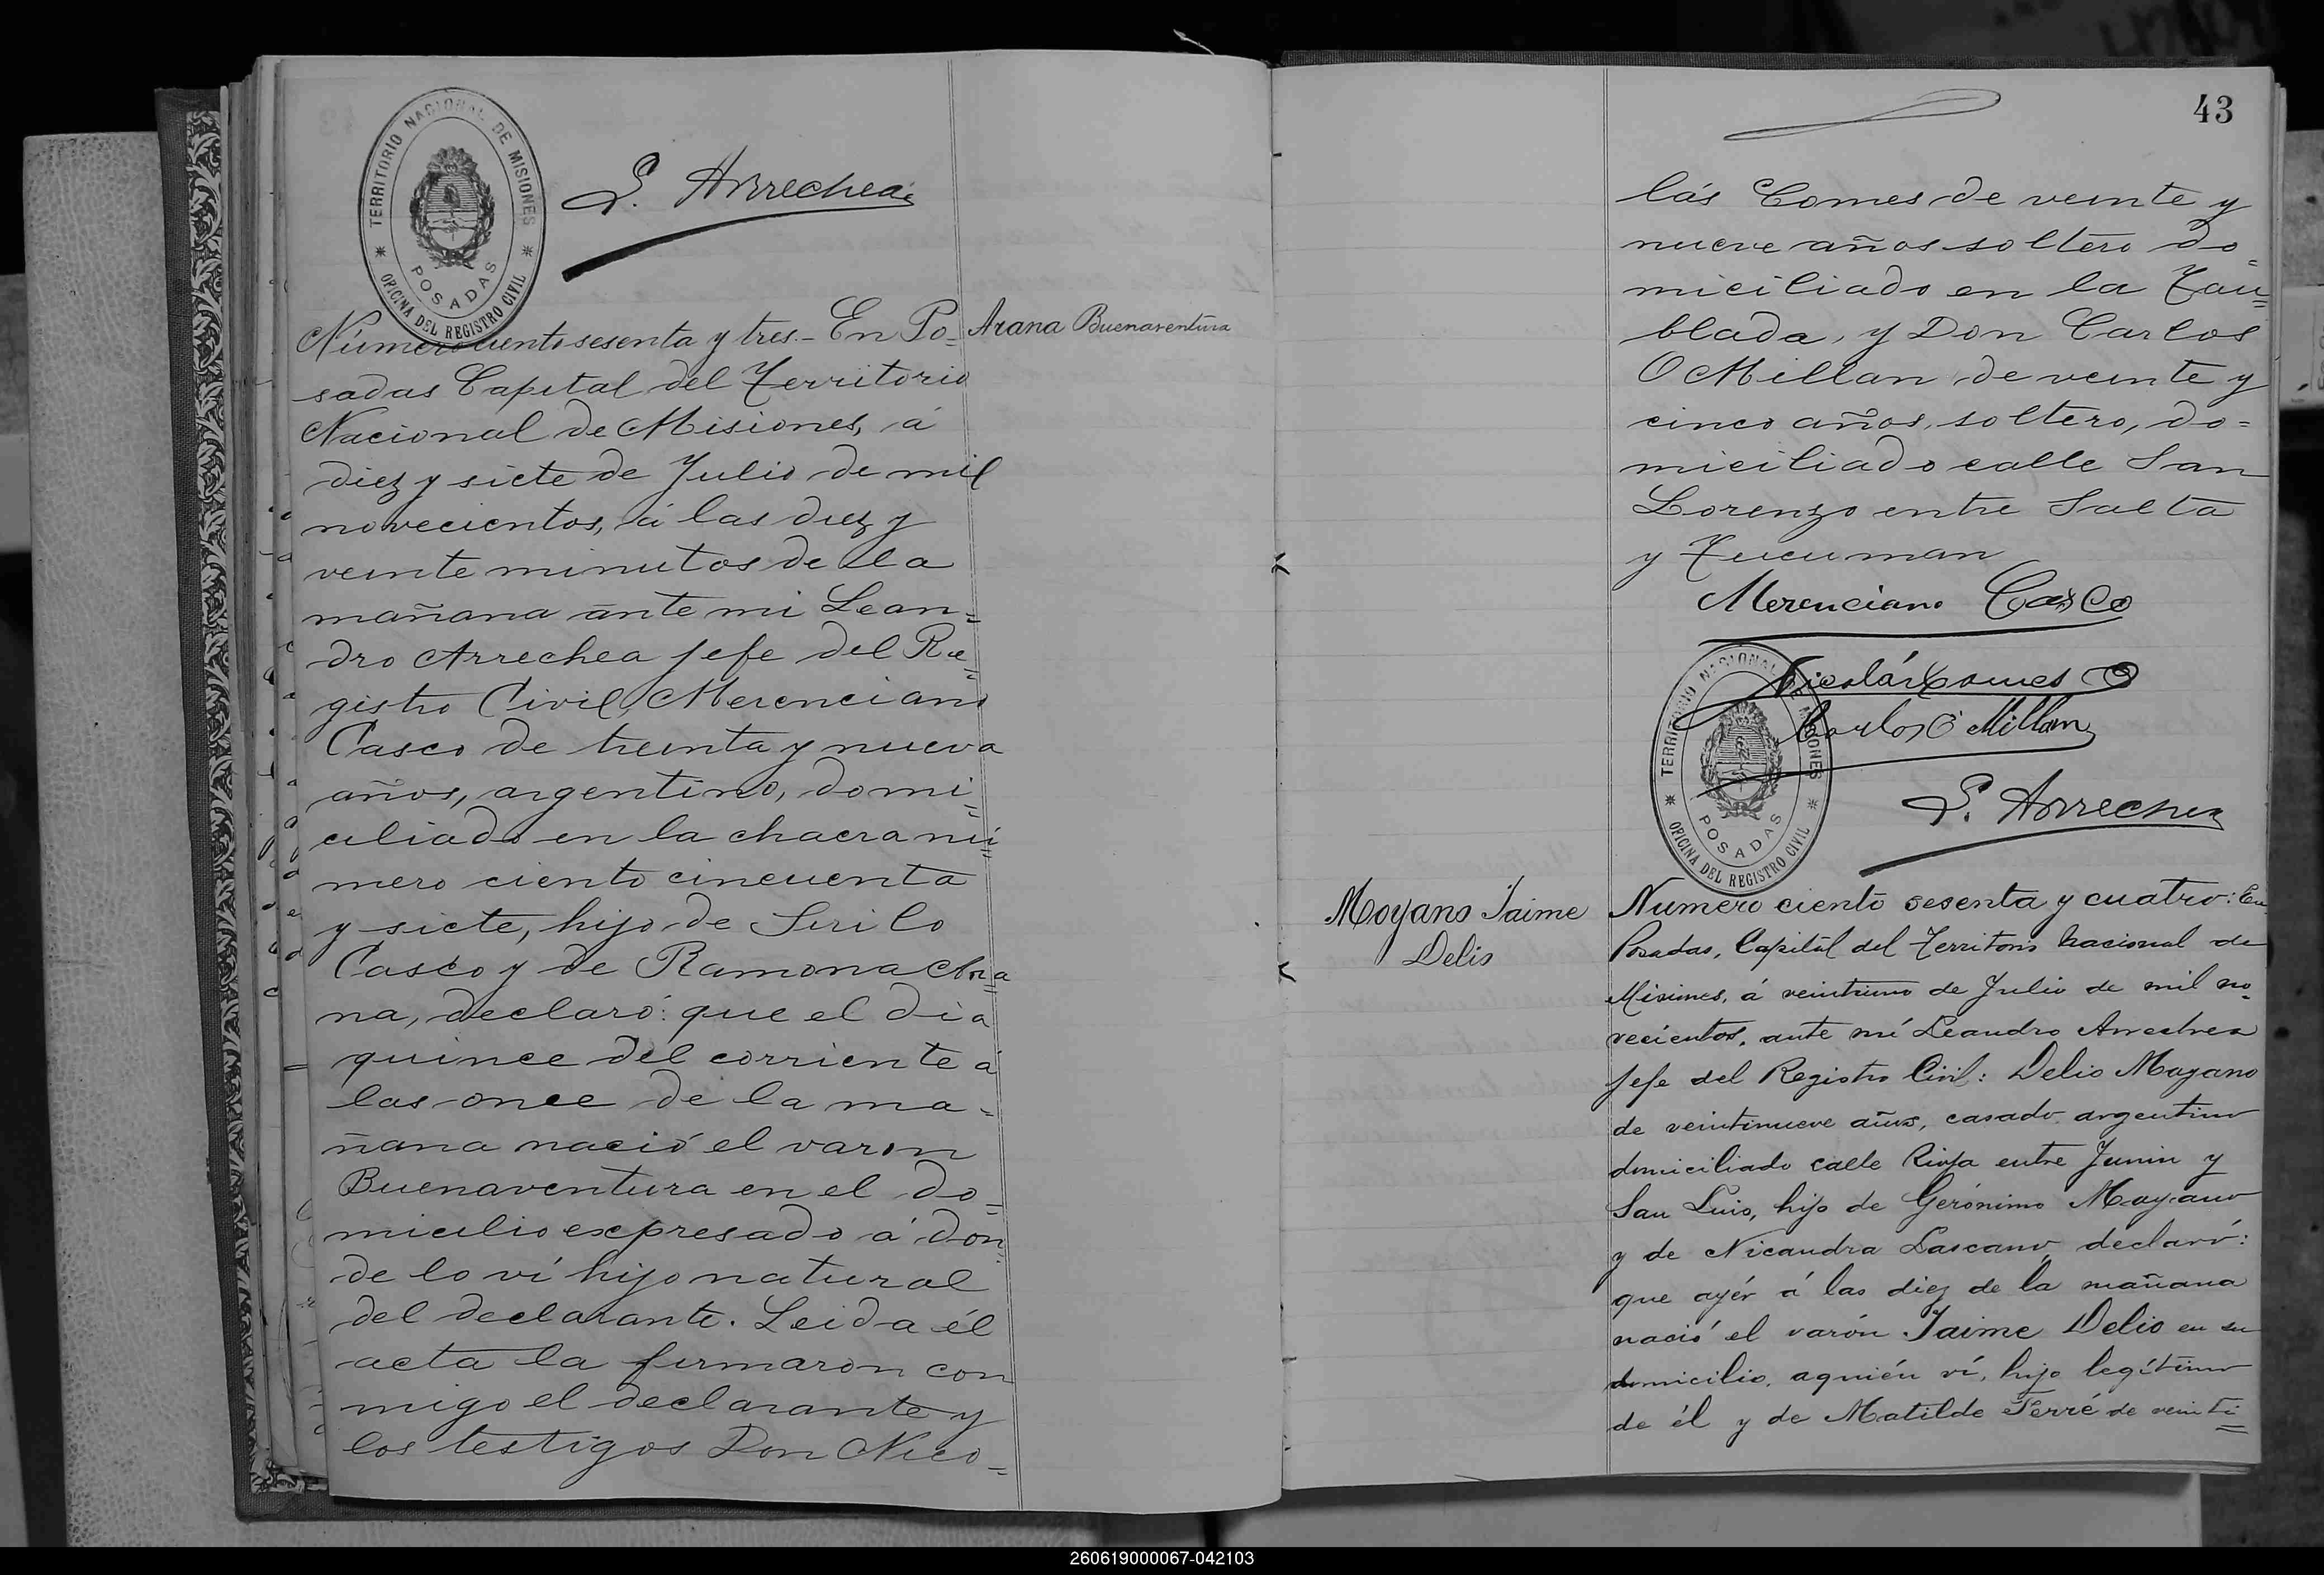 TERRITORIO NACIONAL DE MISIONES
OFICINA DEL REGISTRO CIVIL
POSADAS
L. Arrechea
Número ciento sesenta y tres.- En Po=
Arana Buenaventura
sadas Capital del Territorio
Nacional de Misiones, á
diez y siete de Julio de mil
novecientos, á las diez y
veinte minutos de la
mañana ante mi Lean=
dro Arrechea Jefe del Re=
gistro Civil, Merenciano
Casco de treinta y nueva
años, argentino, domi=
ciliado en la chacra nú=
mero ciento cincuenta
y siete, hijo de Sirilo
Casco y de Ramona Ara=
na, declaró: que el dia
quince del corriente á
las once de la ma-
ñana nació el varon
Buenaventura en el do=
micilio expresado á don=
de lo ví hijo natural
del declarante. Leida él
acta la firmaron con
migo el declarante y
los testigos Don Nico=
43
lás Comes de veinte y
nueve años soltero do=
miciliado en la Tau=
blada, y Don Carlos
O Millan de veinte y
cinco años, soltero, do=
miciliado calle San
Lorenzo entre Salta
y Tucuman
Merenciano Casco
Nicolás Comes
Carlos O Millan
TERRITORIO NACIONAL DE MISIONES
OFICINA DEL REGISTRO CIVIL
POSADAS
L. Arrechea
Moyano Jaime
Delio
Numero ciento sesenta y cuatro: En
Posadas, Capital del Territorio Nacional de
Misiones, á veintiuno de Julio de mil no=
vecientos, ante mí Leandro Arrechea
Jefe del Registro Civil: Delio Moyano
de veintinueve años, casado, argentino
domiciliado calle Rioja entre Junin y
San Luis, hijo de Gerónimo Moyano
y de Nicandra Lascano, declaró:
que ayér á las diez de la mañana
nació el varón Jaime Delio en su
domicilio, aquién ví, hijo legítimo
de él y de Matilde Ferré de veinti=
260619000067-042103